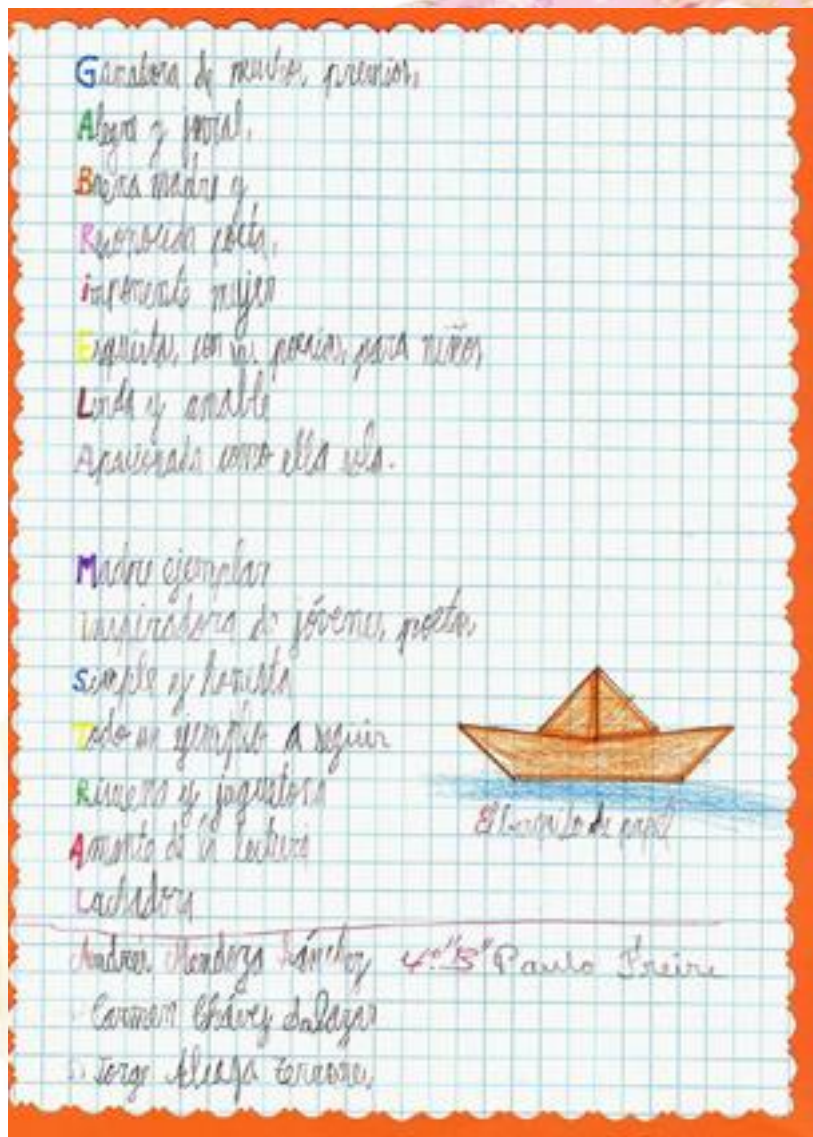 Ganadora de muchos premios,
Alegre y jovial,
Buena madre y
Reconocida poeta,
imponente mujer
Exquisita, con sus poesías, para niños
Linda y amable
Apasionada como ella sola.
Madre ejemplar
inspiradora de jóvenes poetas
Simple y honesta
Todo un ejemplo a seguir
Risueña y juguetona
Amante de la lectura
Luchadora
El barquito de papel
Andrea Mendoza Sánchez 4º "B" Paulo Freire
Carmen Chávez Salazar
Jorge Aliaga